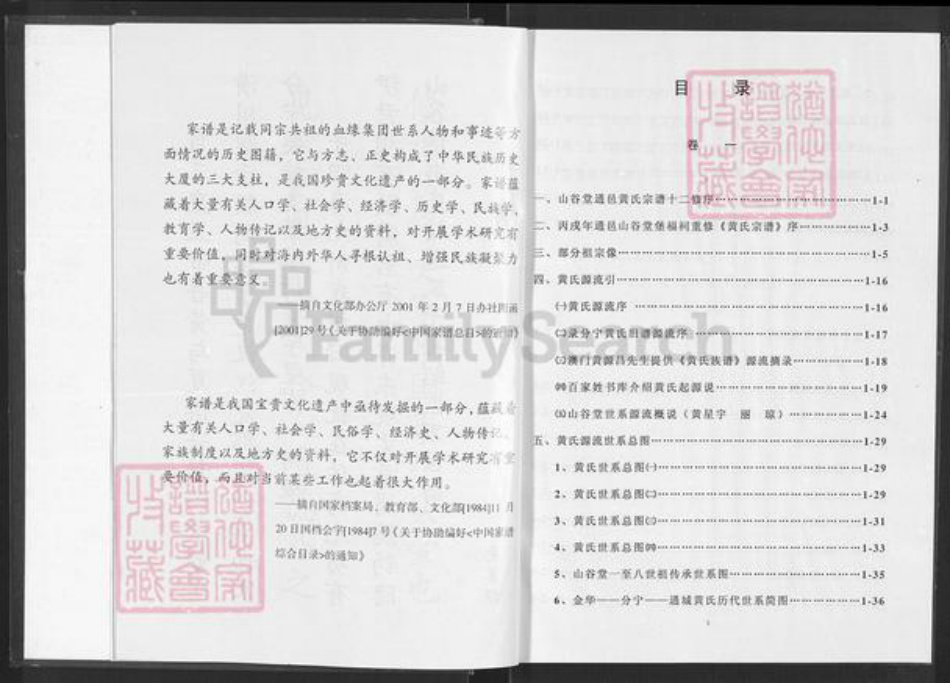 家谱是记载同宗共祖的血缘集团世系人物和事迹等方
面情况的历史图籍，它与方志、正史构成了中华民族历史
大厦的三大支柱，是我国珍贵文化遗产的一部分。家谱蕴
藏着大量有关人口学、社会学、经济学、历史学、民族学、
教育学、人物传记以及地方史的资料，对开展学术研究有
重要价值，同时对海内外华人寻根认祖、增强民族凝聚力
也有着重要意义。
——摘自文化部办公厅 2001 年 2 月 7 日办社图函
[2001]29 号《关于协助编好<中国家谱总目>的通知》
家谱是我国宝贵文化遗产中亟待发掘的一部分，蕴藏着
大量有关人口学、社会学、民俗学、经济史、人物传记、
家族制度以及地方史的资料，它不仅对开展学术研究有重
要价值，而且对当前某些工作也起着很大作用。
——摘自国家档案局、教育部、文化部[1984]11 月
20 日国档会字[1984]7 号《关于协助编好<中国家谱
综合目录>的通知》
目 录
卷 一
一、山谷堂通邑黄氏宗谱十二修序……1-1
二、丙戌年通邑山谷堂堡福祠重修《黄氏宗谱》序……1-3
三、部分祖宗像……1-5
四、黄氏源流引……1-16
㈠黄氏源流序……1-16
㈡录分宁黄氏旧谱源流序……1-17
㈢澳门黄源昌先生提供《黄氏族谱》源流摘录……1-18
㈣百家姓书库介绍黄氏起源说……1-19
㈤山谷堂世系源流概说（黄星宇 丽 琼）……1-24
五、黄氏源流世系总图……1-29
1、黄氏世系总图㈠……1-29
2、黄氏世系总图㈡……1-29
3、黄氏世系总图㈢……1-31
4、黄氏世系总图㈣……1-33
5、山谷堂一至八世祖传承世系图……1-35
6、金华——分宁——通城黄氏历代世系简图……1-36
FamilySearch